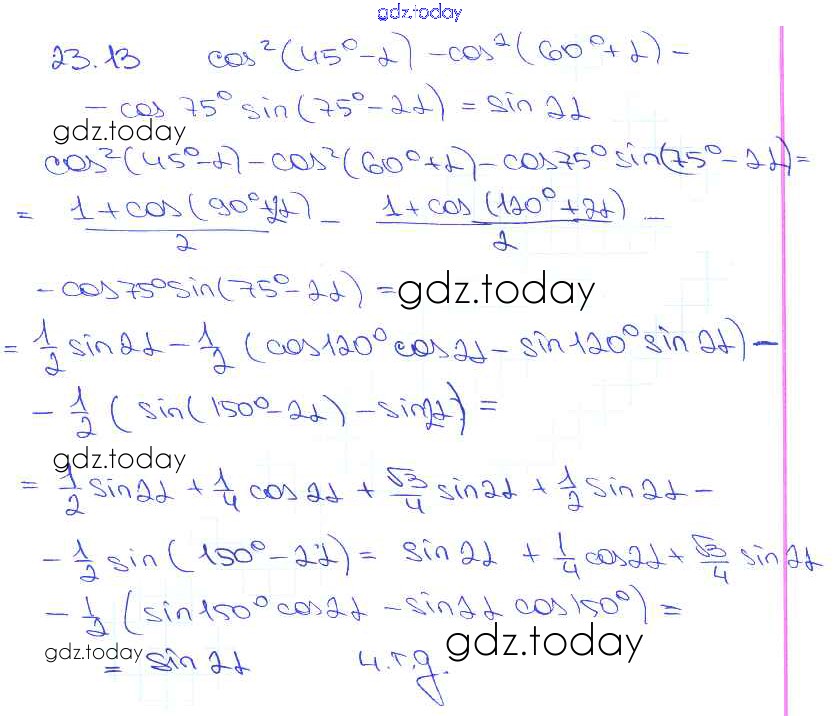 gdz.today
23.13 cos²(45⁰-α) -cos²(60⁰+α) -
- cos 75⁰ sin(75⁰-2α) = sin 2α
gdz.today
cos²(45⁰-α) - cos²(60⁰+α) - cos75⁰ sin(75⁰-2α) =
= (1+cos(90⁰+2α))/2 - (1+cos(120⁰+2α))/2 -
- cos75⁰sin(75⁰-2α) = gdz.today
= 1/2 sin2α - 1/2 (cos120⁰cos2α - sin120⁰sin2α) -
- 1/2 (sin(150⁰-2α) - sin2α) =
gdz.today
= 1/2 sin2α + 1/4 cos2α + √3/4 sin2α + 1/2 sin2α -
- 1/2 sin(150⁰-2α) = sin2α + 1/4 cos2α + √3/4 sin2α
- 1/2 (sin150⁰cos2α - sin2α cos150⁰) =
gdz.today = sin2α ч.т.д. gdz.today